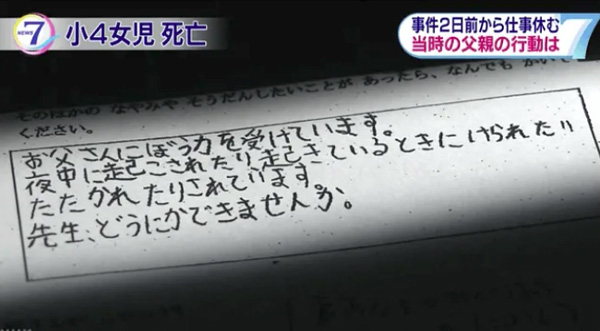 NEWS 7
小4女児 死亡
事件2日前から仕事休む
当時の父親の行動は
7
そのほかの なやみや そうだんしたいことが あったら、なんでも かいて
ください。
お父さんにぼう力を受けています。
夜中に起こされたり起きているときにけられたり
たたかれたりされています。
先生、どうにかできませんか。